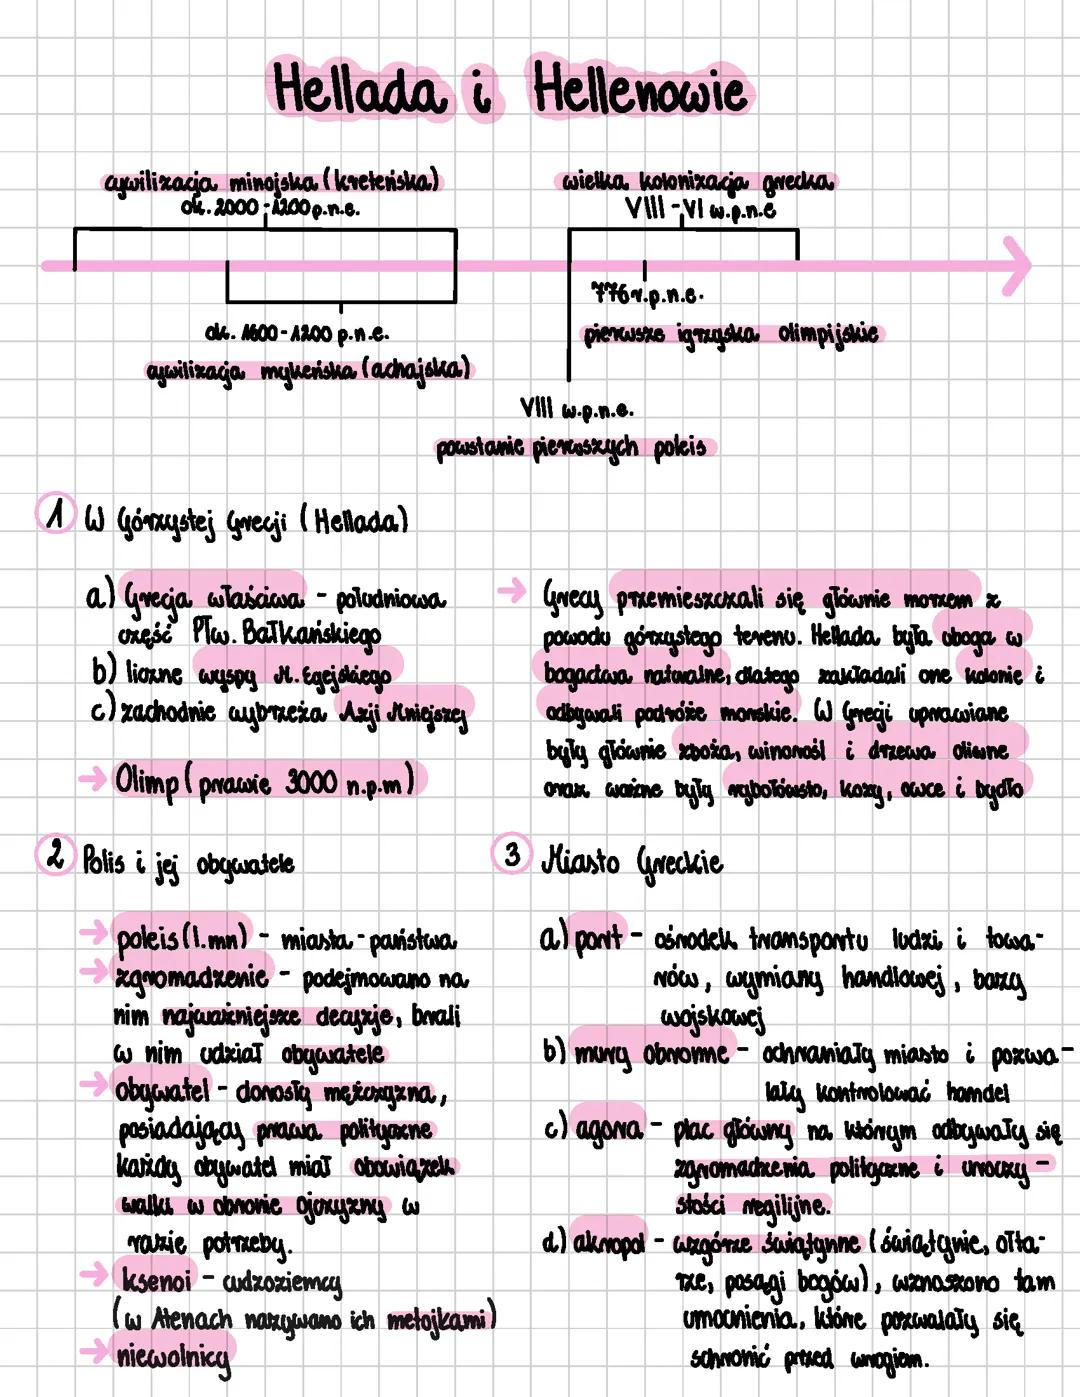 Hellada i Hellenowie
cywilizacja minojska (kreteńska)
ok. 2000 - 1200 p.n.e.
wielka kolonizacja grecka
VIII - VI w.p.n.e
776 r.p.n.e.
pierwsze igrzyska olimpijskie
ok. 1600 - 1200 p.n.e.
cywilizacja mykeńska (achajska)
VIII w.p.n.e.
powstanie pierwszych poleis
1 W Górzystej Grecji (Hellada)
a) Grecja właściwa - południowa
część Płw. Bałkańskiego
b) liczne wyspy M. Egejskiego
c) zachodnie wybrzeża Azji Mniejszej
→ Olimp (prawie 3000 n.p.m)
→ Grecy przemieszczali się głównie morzem z
powodu górzystego terenu. Hellada była uboga w
bogactwa naturalne, dlatego zakładali one kolonie i
odbywali podróże morskie. W Grecji uprawiane
były głównie zboża, winorośl i drzewa oliwne
oraz ważne były rybołówstwo, kozy, owce i bydło
2 Polis i jej obywatele
→ poleis (l.mn) - miasta - państwa
→ zgromadzenie - podejmowano na
nim najważniejsze decyzje, brali
w nim udział obywatele
→ obywatel - dorosły mężczyzna,
posiadający prawa polityczne
każdy obywatel miał obowiązek
walki w obronie Ojczyzny w
razie potrzeby.
→ ksenoi - cudzoziemcy
(w Atenach nazywano ich metojkami)
→ niewolnicy
3 Miasto Greckie
a) port - ośrodek transportu ludzi i towa-
rów, wymiany handlowej, bazy
wojskowej
b) mury obronne - ochraniały miasto i pozwa-
lały kontrolować handel
c) agora - plac główny na którym odbywały się
zgromadzenia polityczne i uroczy-
stości regilijne.
d) akropol - wzgórze świątynne (świątynie, ołta-
rze, posągi bogów), wznoszono tam
umocnienia, które pozwalały się
schronić przed wrogiem.